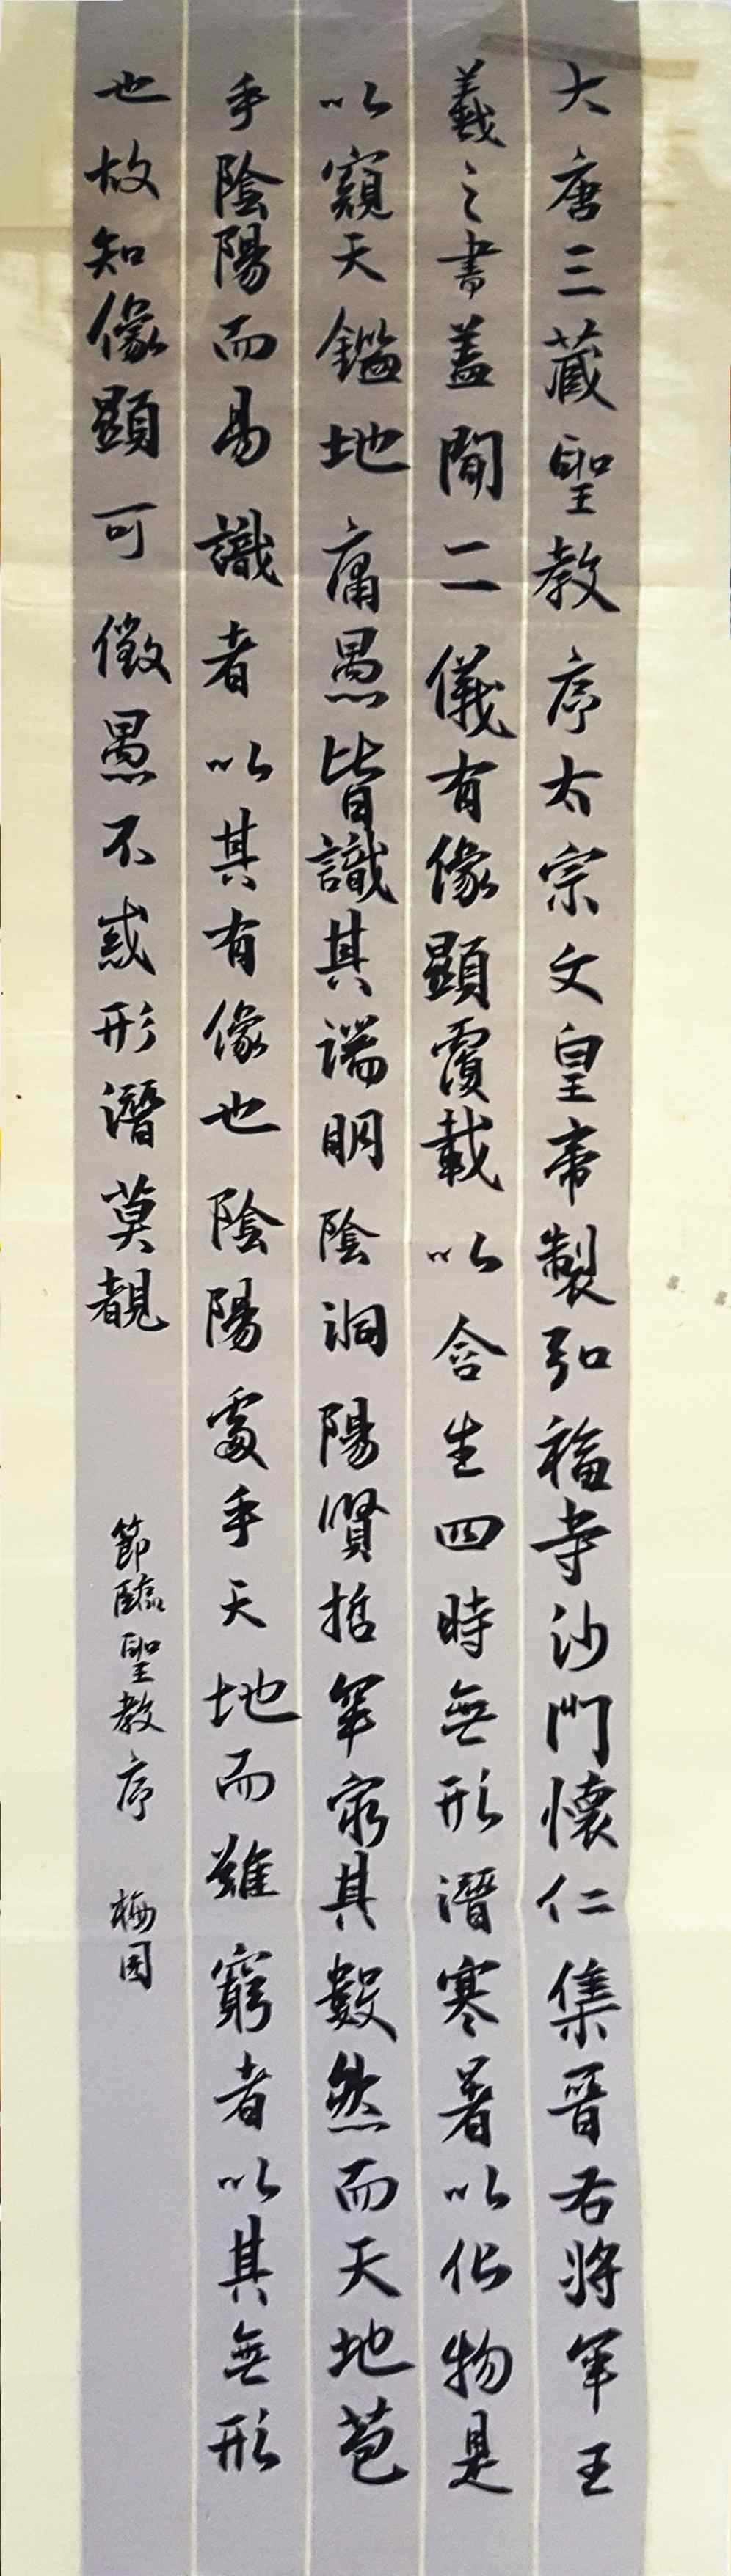 大唐三藏聖教序太宗文皇帝製弘福寺沙門懷仁集晉右將軍王
羲之書蓋聞二儀有像顯覆載以含生四時無形潛寒暑以化物是
以窺天鑑地庸愚皆識其端明陰洞陽賢哲罕窮其數然而天地苞
乎陰陽而易識者以其有像也陰陽處乎天地而難窮者以其無形
也故知像顯可徵愚不惑形潛莫覩
節臨聖教序 梅園